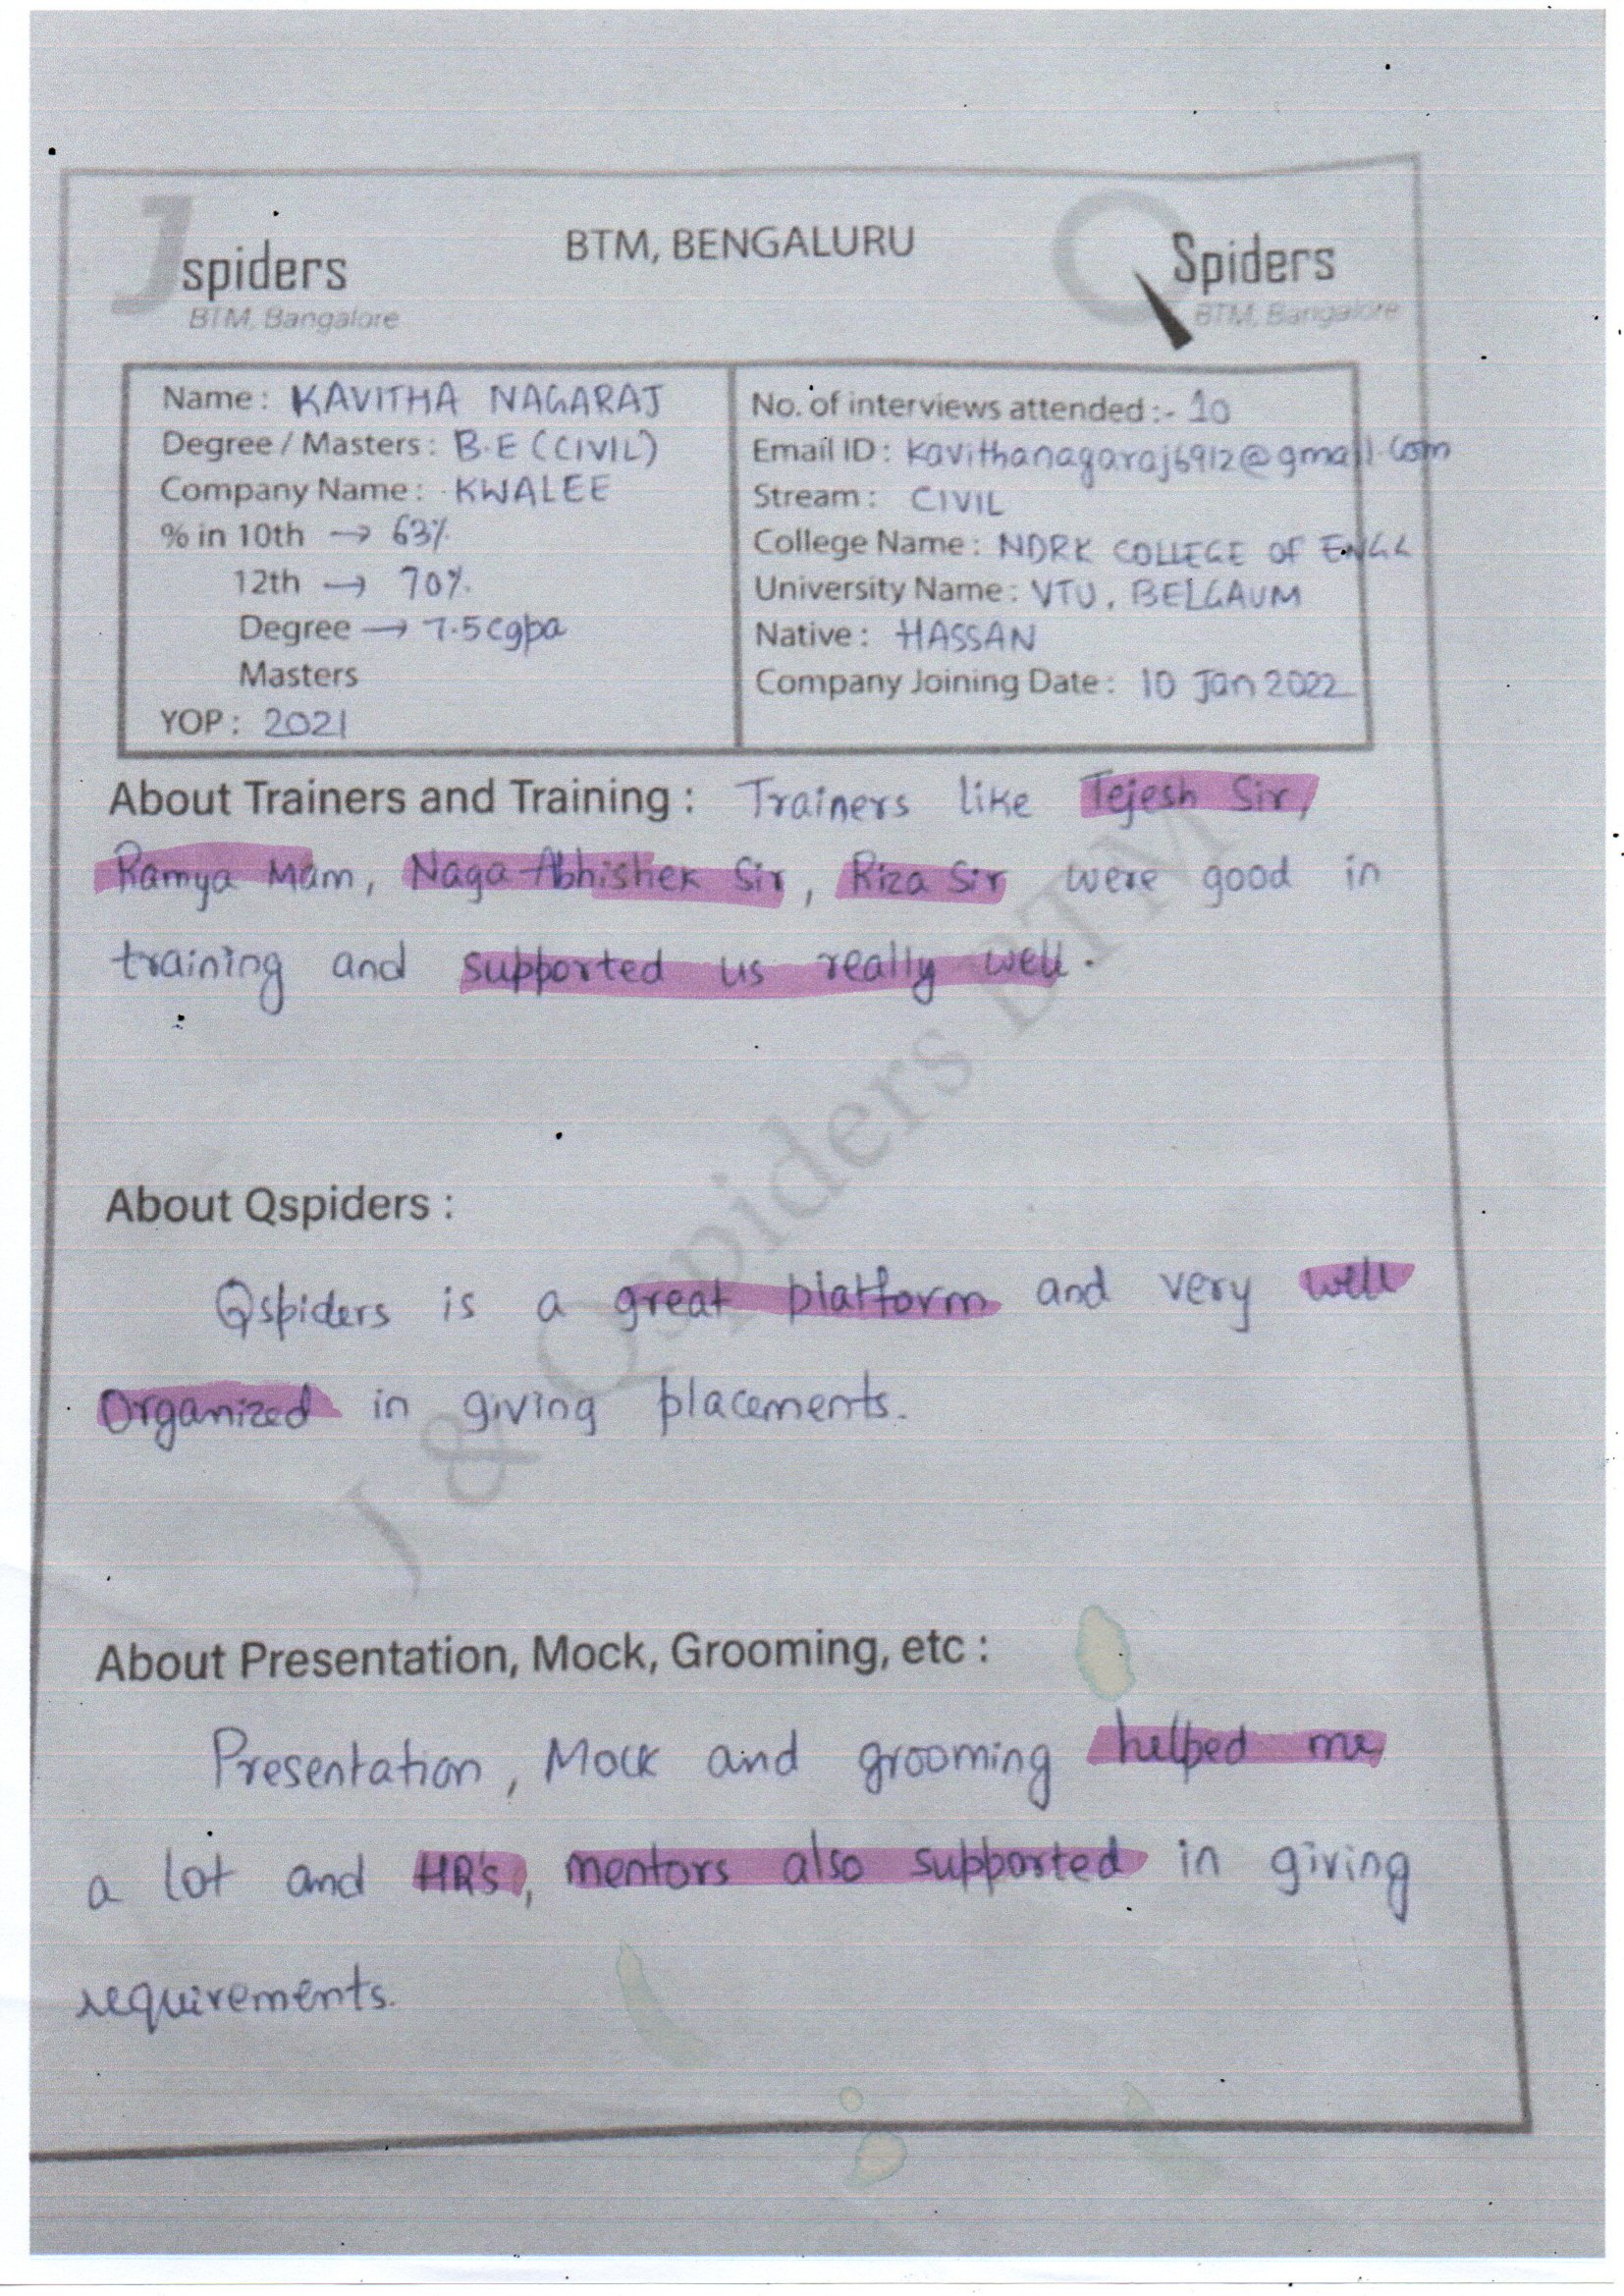 BTM, BENGALURU
Jspiders
BTM, Bangalore
QSpiders
BTM, Bangalore
Name : KAVITHA NAGARAJ
Degree / Masters : B.E (CIVIL)
Company Name : KWALEE
% in 10th → 63%
12th → 70%
Degree → 7.5 cgpa
Masters
YOP : 2021
No. of interviews attended :- 10
Email ID : kavithanagaraj6912@gmail.com
Stream : CIVIL
College Name : NDRK COLLEGE OF ENGG
University Name : VTU, BELGAUM
Native : HASSAN
Company Joining Date : 10 Jan 2022
About Trainers and Training : Trainers like Tejesh Sir,
Ramya Mam, Naga Abhishek Sir, Riza Sir were good in
training and supported us really well.
About Qspiders :
Qspiders is a great platform and very well
Organized in giving placements.
About Presentation, Mock, Grooming, etc :
Presentation, Mock and grooming helped me
a lot and HR's, mentors also supported in giving
requirements.
J & Qspiders BTM